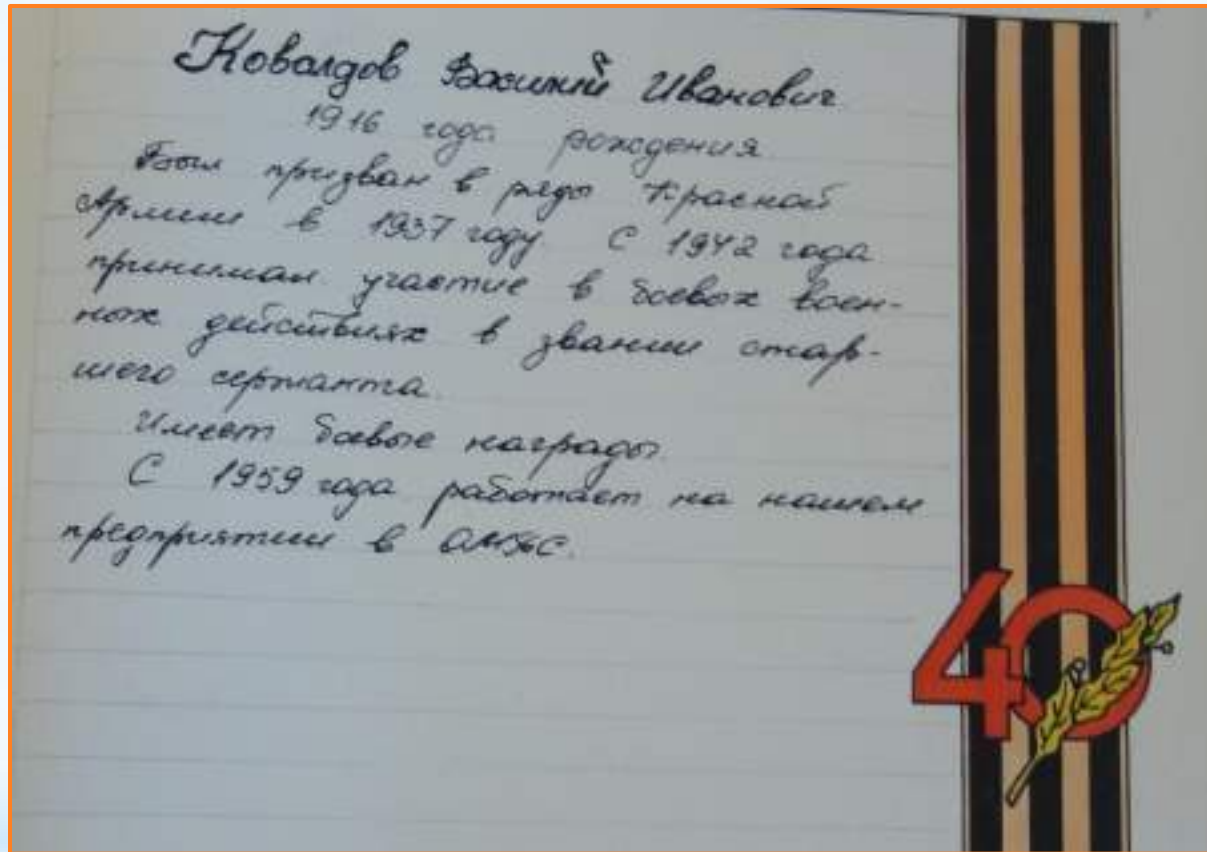 Ковалдов Василий Иванович
1916 года рождения.
Был призван в ряды Красной
Армии в 1937 году. С 1942 года
принимал участие в боевых воен-
ных действиях в звании стар-
шего сержанта.
Имеет боевые награды.
С 1959 года работает на нашем
предприятии в
40